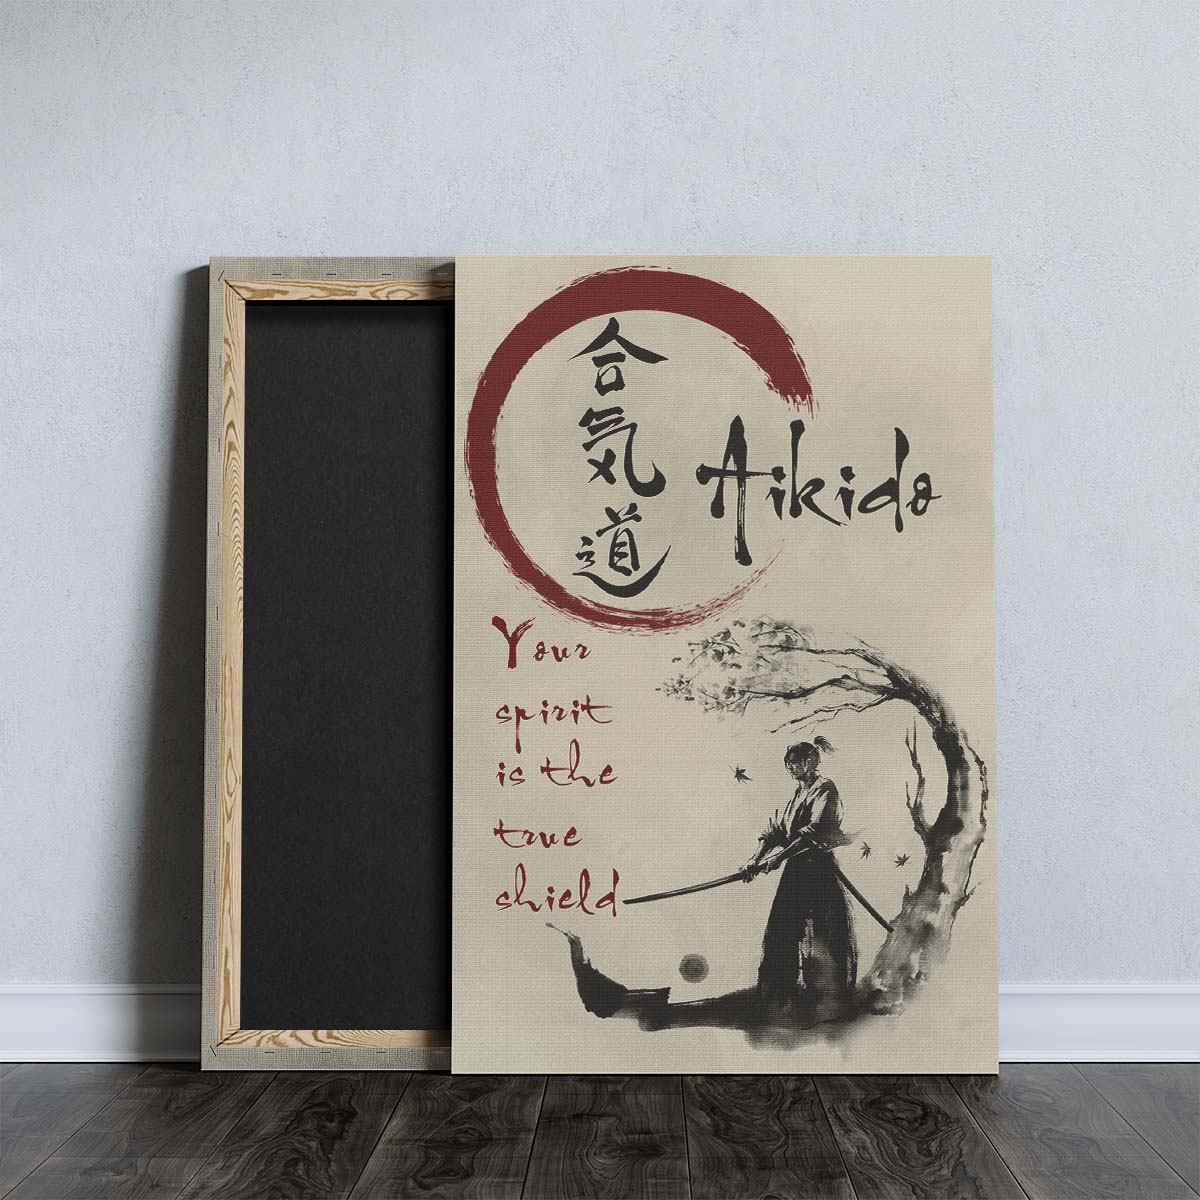 合気道
Aikido
Your
spirit
is the
true
shield